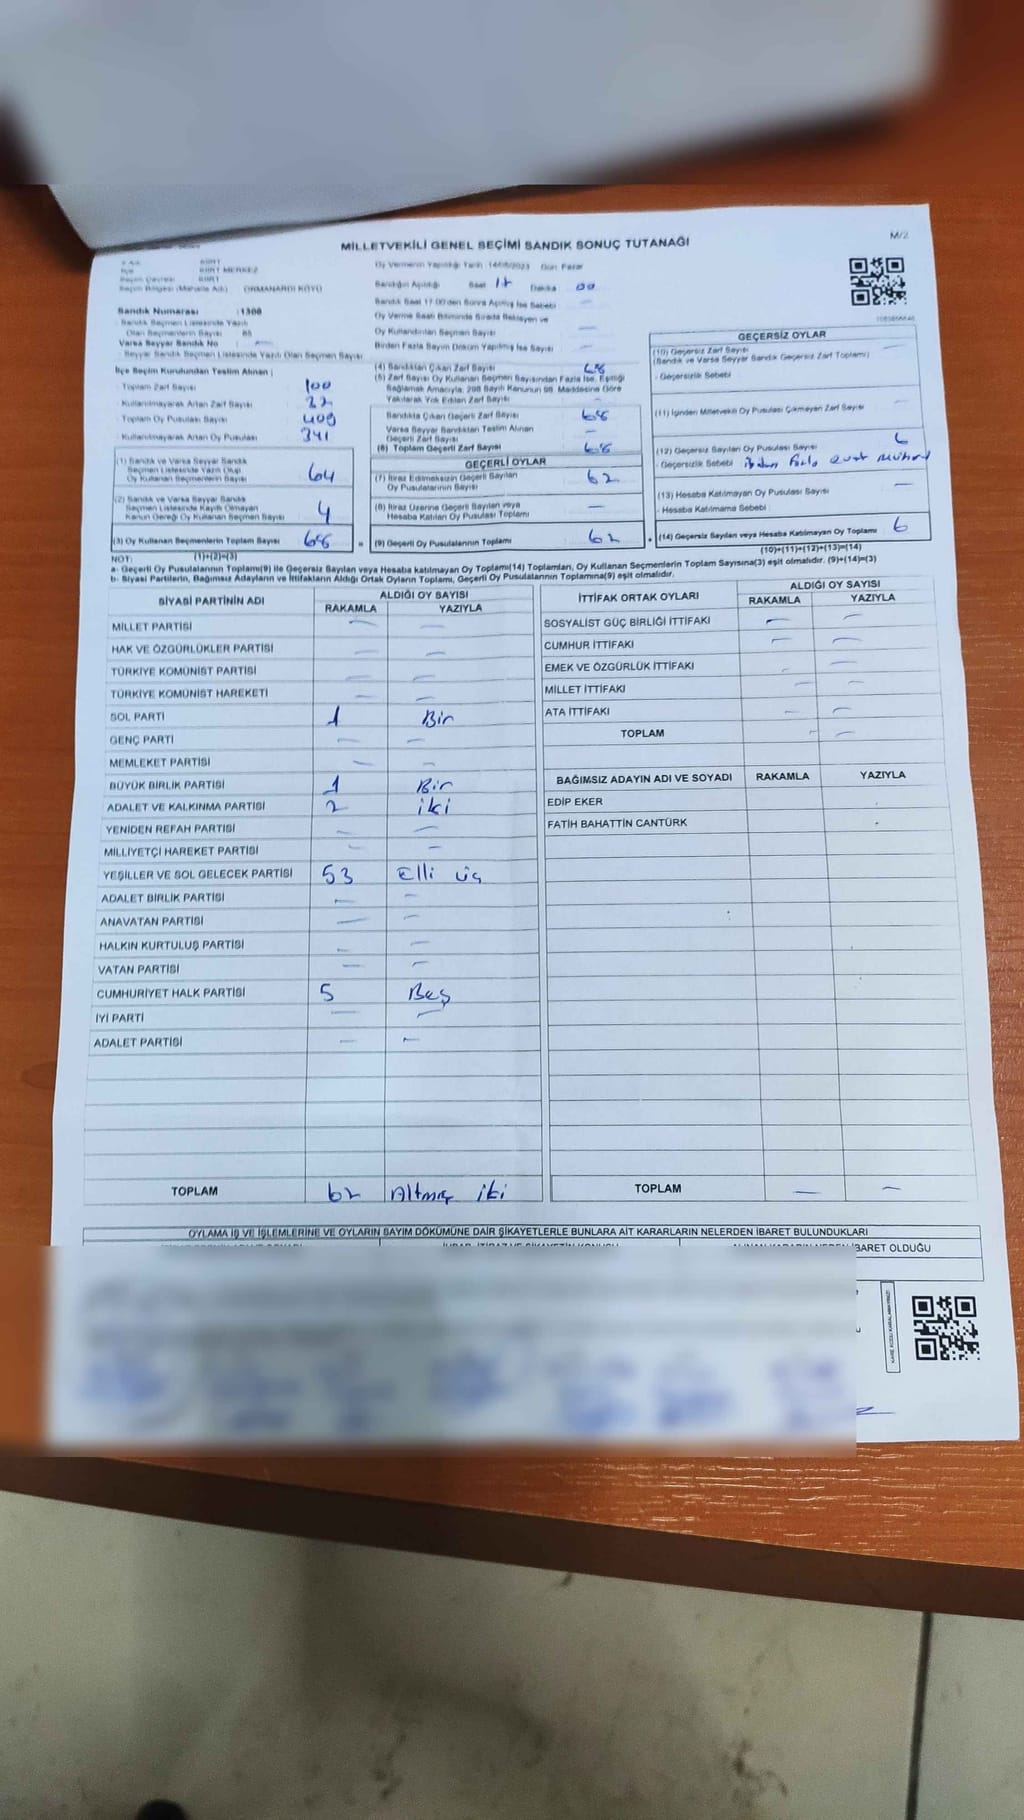 MİLLETVEKİLİ GENEL SEÇİMİ SANDIK SONUÇ TUTANAĞI
M/2
SİİRT
İlçe SİİRT MERKEZ
Seçim Çevresi SİİRT
Seçim Bölgesi (Mahalle Adı) ORMANARDI KÖYÜ
Oy Vermenin Yapıldığı Tarih 14/05/2023 Gün Pazar
Sandığın Açıldığı Saat 17 Dakika 00
Sandık Saat 17:00'den Sonra Açılmış İse Sebebi —
Oy Verme Saati Bitiminde Sırada Bekleyen ve
Oy Kullandırılan Seçmen Sayısı —
Birden Fazla Sayım Döküm Yapılmış İse Sayısı —
Sandık Numarası :1308
- Sandık Seçmen Listesinde Yazılı
Olan Seçmenlerin Sayısı 85
Varsa Seyyar Sandık No —
- Seyyar Sandık Seçmen Listesinde Yazılı Olan Seçmen Sayısı
İlçe Seçim Kurulundan Teslim Alınan ;
- Toplam Zarf Sayısı 100
- Kullanılmayarak Artan Zarf Sayısı 32
- Toplam Oy Pusulası Sayısı 409
- Kullanılmayarak Artan Oy Pusulası 341
(1) Sandık ve Varsa Seyyar Sandık
Seçmen Listesinde Yazılı Olup
Oy Kullanan Seçmenlerin Sayısı 64
(2) Sandık ve Varsa Seyyar Sandık
Seçmen Listesinde Kayıtlı Olmayan
Kanun Gereği Oy Kullanan Seçmen Sayısı 4
(3) Oy Kullanan Seçmenlerin Toplam Sayısı 68
(1)+(2)=(3)
(4) Sandıktan Çıkan Zarf Sayısı 68
(5) Zarf Sayısı Oy Kullanan Seçmen Sayısından Fazla İse, Eşitliği
Sağlamak Amacıyla, 298 Sayılı Kanunun 98. Maddesine Göre
Yakılarak Yok Edilen Zarf Sayısı —
Sandıkta Çıkan Geçerli Zarf Sayısı 68
Varsa Seyyar Sandıktan Teslim Alınan
Geçerli Zarf Sayısı —
(6) Toplam Geçerli Zarf Sayısı 68
GEÇERLİ OYLAR
(7) İtiraz Edilmeksizin Geçerli Sayılan
Oy Pusulalarının Sayısı 62
(8) İtiraz Üzerine Geçerli Sayılan veya
Hesaba Katılan Oy Pusulası Toplamı —
= (9) Geçerli Oy Pusulalarının Toplamı 62 +
GEÇERSİZ OYLAR
(10) Geçersiz Zarf Sayısı —
(Sandık ve Varsa Seyyar Sandık Geçersiz Zarf Toplamı)
- Geçersizlik Sebebi
(11) İçinden Milletvekili Oy Pusulası Çıkmayan Zarf Sayısı —
(12) Geçersiz Sayılan Oy Pusulası Sayısı 6
- Geçersizlik Sebebi fazla evet
(13) Hesaba Katılmayan Oy Pusulası Sayısı —
- Hesaba Katılmama Sebebi
(14) Geçersiz Sayılan veya Hesaba Katılmayan Oy Toplamı 6
(10)+(11)+(12)+(13)=(14)
NOT:
a- Geçerli Oy Pusulalarının Toplamı(9) ile Geçersiz Sayılan veya Hesaba Katılmayan Oy Toplamı(14) Toplamları, Oy Kullanan Seçmenlerin Toplam Sayısına(3) eşit olmalıdır. (9)+(14)=(3)
b- Siyasi Partilerin, Bağımsız Adayların ve İttifakların Aldığı Ortak Oyların Toplamı, Geçerli Oy Pusulalarının Toplamına(9) eşit olmalıdır.
SİYASİ PARTİNİN ADI ALDIĞI OY SAYISI
RAKAMLA YAZIYLA
MİLLET PARTİSİ — —
HAK VE ÖZGÜRLÜKLER PARTİSİ — —
TÜRKİYE KOMÜNİST PARTİSİ — —
TÜRKİYE KOMÜNİST HAREKETİ — —
SOL PARTİ 1 Bir
GENÇ PARTİ — —
MEMLEKET PARTİSİ — —
BÜYÜK BİRLİK PARTİSİ 1 Bir
ADALET VE KALKINMA PARTİSİ 2 iki
YENİDEN REFAH PARTİSİ — —
MİLLİYETÇİ HAREKET PARTİSİ — —
YEŞİLLER VE SOL GELECEK PARTİSİ 53 Elli üç
ADALET BİRLİK PARTİSİ — —
ANAVATAN PARTİSİ — —
HALKIN KURTULUŞ PARTİSİ — —
VATAN PARTİSİ — —
CUMHURİYET HALK PARTİSİ 5 Beş
İYİ PARTİ — —
ADALET PARTİSİ — —
TOPLAM 62 Altmış iki
İTTİFAK ORTAK OYLARI ALDIĞI OY SAYISI
RAKAMLA YAZIYLA
SOSYALİST GÜÇ BİRLİĞİ İTTİFAKI — —
CUMHUR İTTİFAKI — —
EMEK VE ÖZGÜRLÜK İTTİFAKI — —
MİLLET İTTİFAKI — —
ATA İTTİFAKI — —
TOPLAM — —
BAĞIMSIZ ADAYIN ADI VE SOYADI RAKAMLA YAZIYLA
EDİP EKER
FATİH BAHATTİN CANTÜRK
TOPLAM — —
OYLAMA İŞ VE İŞLEMLERİNE VE OYLARIN SAYIM DÖKÜMÜNE DAİR ŞİKAYETLERLE BUNLARA AİT KARARLARIN NELERDEN İBARET BULUNDUKLARI
İBARET OLDUĞU
KARE KODU KARALAMAYINIZ!